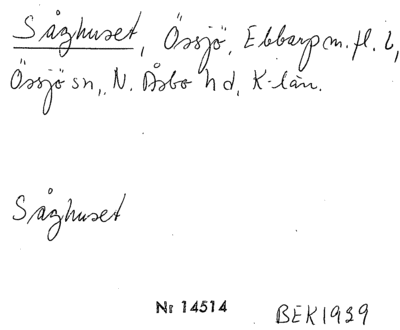 Såghuset, Össjö, Ebbarp m. fl. b,
Össjö sn, N. Åsbo hd, K-län.
Såghuset
Nr 14514 BEK1939